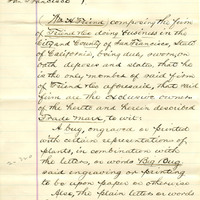 San Francisco }
Wm. H. Friend, composing the firm
of Friend Bro doing business in the
City and County of San Francisco, State
of California, being duly sworn on
oath deposes and states, that he
is the only member of said firm
of Friend Bro aforesaid; that said
firm are the exclusive owners
of the hereto and herein described
Trade mark to wit:
A bug, engraved or printed
with certain representations of
plants, in combination with
the letters, or words "Bug Bug
said engraving or printing
to be upon paper or otherwise
Also, the plain letters or words